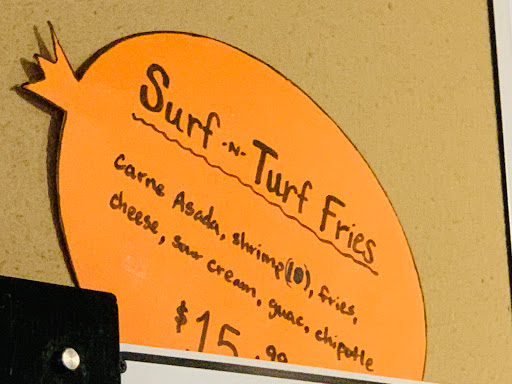 Surf -N- Turf Fries
Carne Asada, shrimp(10), fries,
cheese, sour cream, guac, chipotle
$15.99